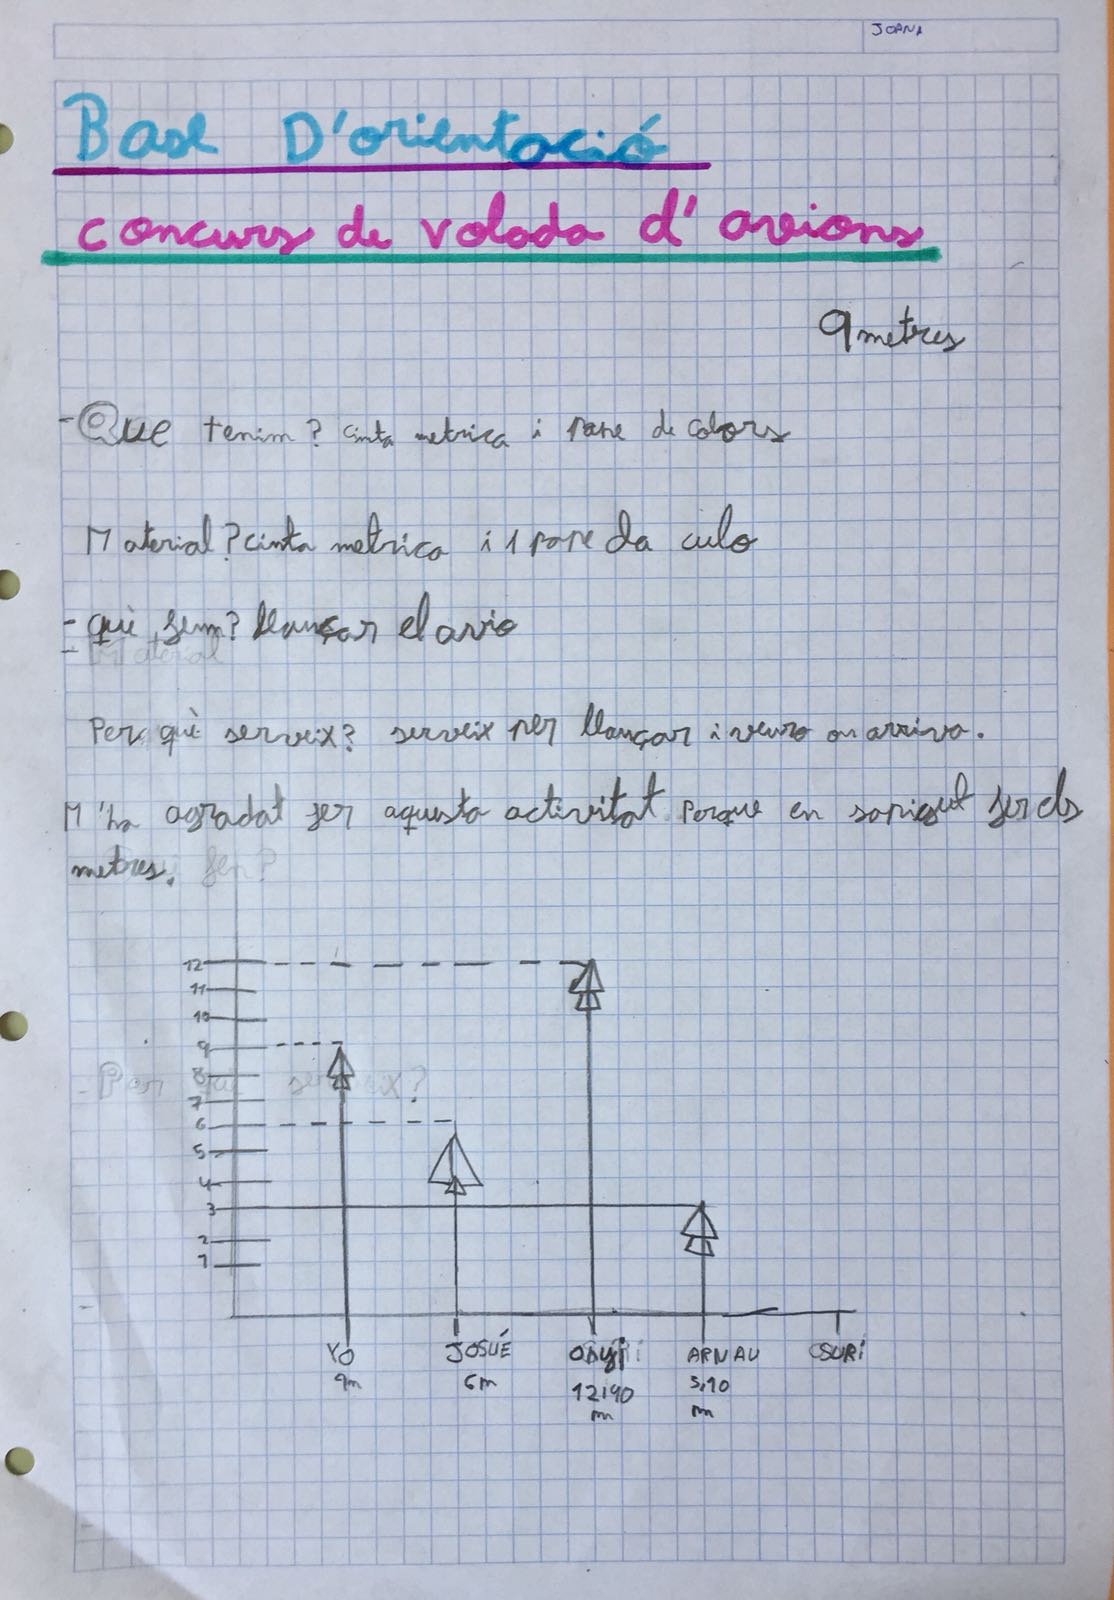 JOANA
Base D'orientació
concurs de volada d'avions
9 metres
-Que tenim? cinta metrica i pape de colors
Material? cinta metrica i 1 pape da culo
- què fem? llançar el avio
- Material
Per què serveix? serveix per llançar i veure on arriva.
M'ha agradat fer aquesta activitat porque en sapigut fer els
metres. fem?
12
11
10
9
8
- Per què serveix?
7
6
5
4
3
2
1
YO JOSUÉ ARNAU OSURI
9m 6m 12,90 3,10
m m